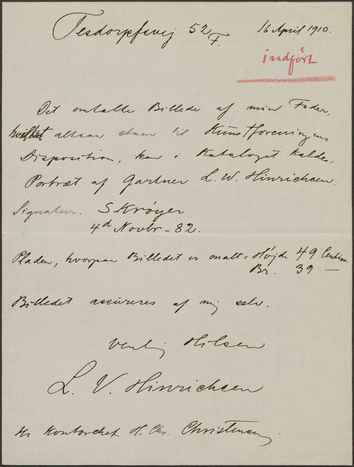 Tesdorpfsvej 52 I 16 April 1910.
indført
Det omtalte Billede af min Fader,
hvilket altsaa staar til Kunstforeningens
Disposition, kan i Kataloget kaldes:
Portræt af Gartner L. W. Hinrichsen.
Signatur. S Krøyer
4de Novbr. - 82.
Pladen, hvorpaa Billedet er malt: Højde 49 Centim
Br. 39 —
Billedet assureres af mig selv.
Venlig Hilsen
L. V. Hinrichsen
Hr Kontorchef H. Chr. Christensen